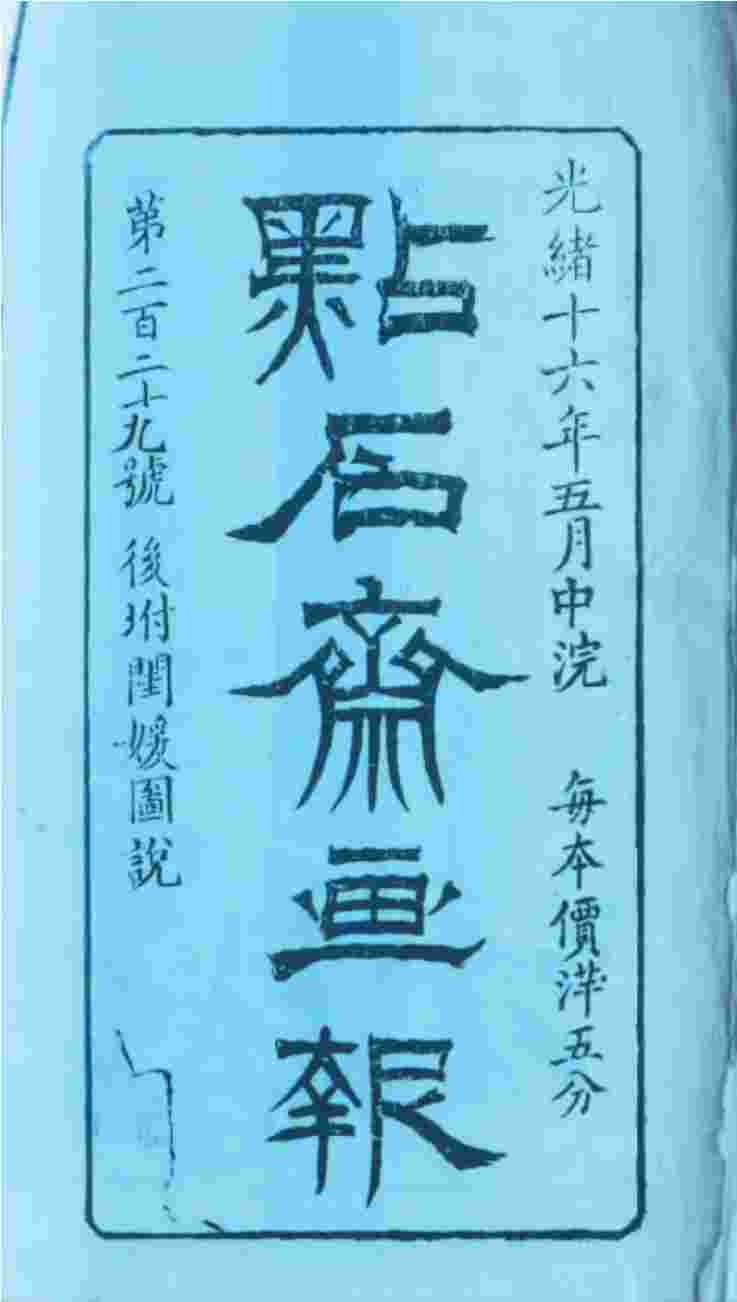 光緒十六年五月中浣 每本價洋五分
點石齋画報
第二百二十九號 後坿閨媛圖說